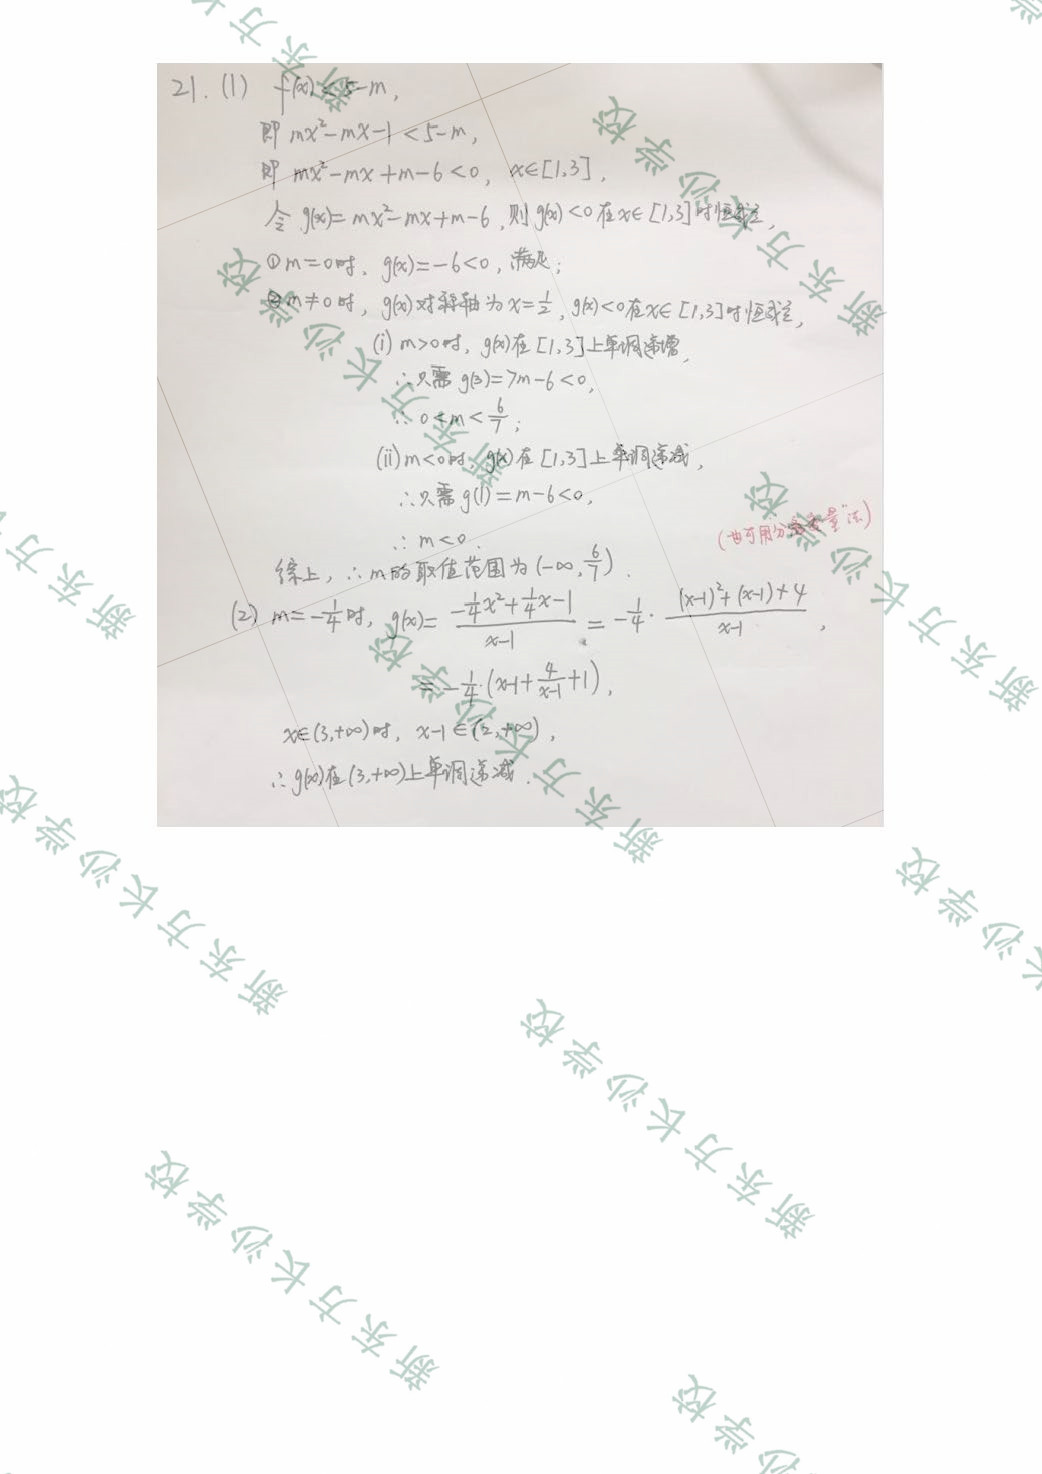 21. (1) f(x) < 5-m,
即 mx²-mx-1 < 5-m,
即 mx²-mx+m-6<0, x∈[1,3],
令 g(x)= mx²-mx+m-6, 则 g(x)<0 在 x∈[1,3] 时恒成立,
① m=0时, g(x)=-6<0, 满足;
② m≠0时, g(x)对称轴为 x=1/2, g(x)<0 在 x∈[1,3] 时恒成立,
(i) m>0时, g(x)在[1,3]上单调递增,
∴只需 g(3)=7m-6<0,
∴ 0<m<6/7;
(ii) m<0时, g(x)在[1,3]上单调递减,
∴只需 g(1)=m-6<0,
(也可用分离变量"法)
∴ m<0.
综上, ∴m的取值范围为(-∞, 6/7).
(2) m=-1/4时, g(x)= (-1/4x²+1/4x-1)/(x-1) = -1/4·((x-1)²+(x-1)+4)/(x-1),
= -1/4·(x-1+4/(x-1)+1),
x∈(3,+∞)时, x-1∈(2,+∞),
∴g(x)在(3,+∞)上单调递减.
新东方长沙学校
新东方长沙学校
新东方长沙学校
新东方长沙学校
新东方长沙学校
新东方长沙学校